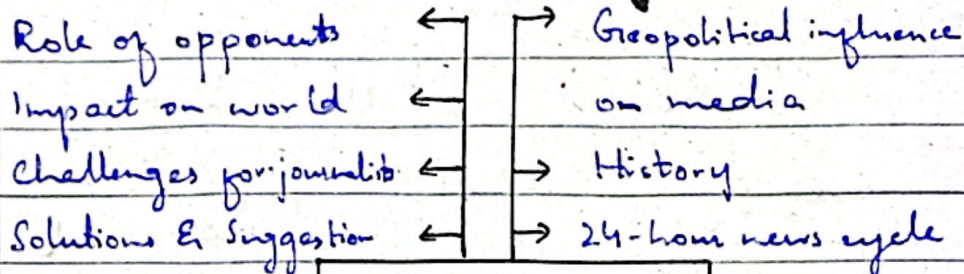 Role of opponents
Impact on world
Challenges for journalists
Solutions & Suggestion
Geopolitical influence
on media
History
24-hour news cycle